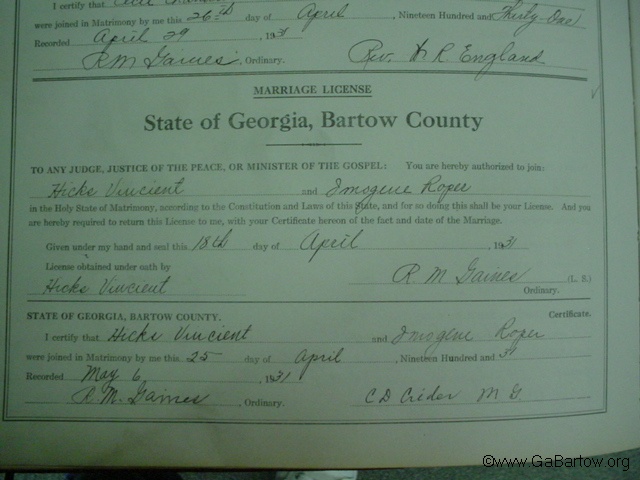 I certify that
were joined in Matrimony by me this 26th day of April, Nineteen Hundred and Thirty-One
Recorded April 29, 1931
R M Gaines, Ordinary. Rev. H R England
MARRIAGE LICENSE
State of Georgia, Bartow County
TO ANY JUDGE, JUSTICE OF THE PEACE, OR MINISTER OF THE GOSPEL: You are hereby authorized to join:
Hicks Vincient and Imogene Roper
in the Holy State of Matrimony, according to the Constitution and Laws of this State, and for so doing this shall be your License. And you
are hereby required to return this License to me, with your Certificate hereon of the fact and date of the Marriage.
Given under my hand and seal this 18th day of April, 1931
License obtained under oath by R M Gaines (L. S.)
Hicks Vincient Ordinary.
STATE OF GEORGIA, BARTOW COUNTY. Certificate.
I certify that Hicks Vincient and Imogene Roper
were joined in Matrimony by me this 25 day of April, Nineteen Hundred and 31
Recorded May 6, 1931
R. M. Gaines, Ordinary. C D Crider M G.
©www.GaBartow.org